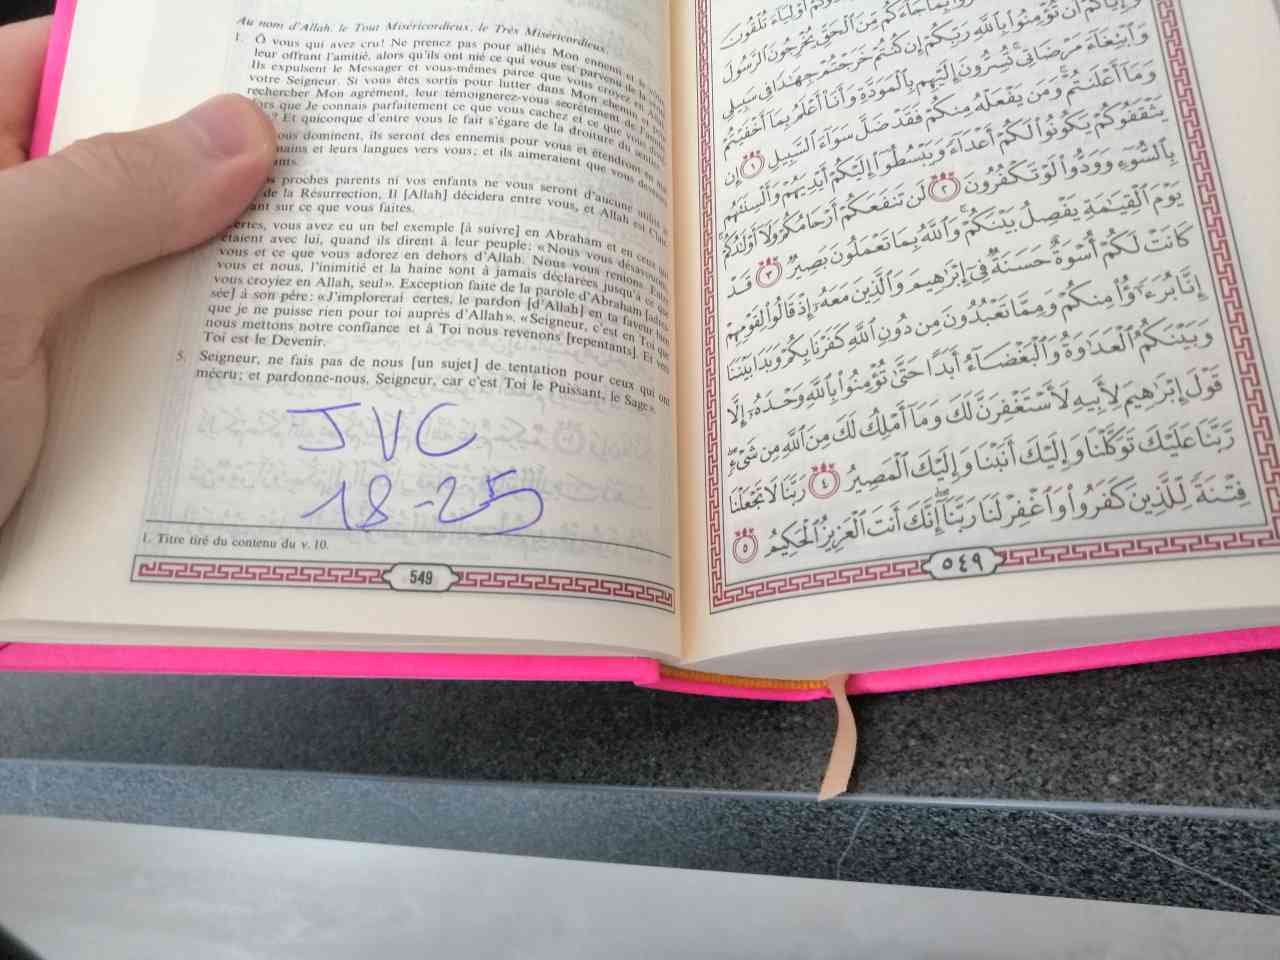 Au nom d'Allah, le Tout Miséricordieux, le Très Miséricordieux.
1. Ô vous qui avez cru! Ne prenez pas pour alliés Mon ennemi et le vôtre,
leur offrant l'amitié, alors qu'ils ont nié ce qui vous est parvenu de la
Ils expulsent le Messager et vous-mêmes parce que vous croyez en
votre Seigneur. Si vous êtes sortis pour lutter dans Mon chemin et pour
rechercher Mon agrément, leur témoignerez-vous secrètement de l'amitié,
alors que Je connais parfaitement ce que vous cachez et ce que vous
? Et quiconque d'entre vous le fait s'égare de la droiture du sentier.
vous dominent, ils seront des ennemis pour vous et étendront en
mains et leurs langues vers vous; et ils aimeraient que vous
proches parents ni vos enfants ne vous seront d'aucune utilité
de la Résurrection, Il [Allah] décidera entre vous, et Allah est
sur ce que vous faites.
Certes, vous avez eu un bel exemple [à suivre] en Abraham et en ceux qui
étaient avec lui, quand ils dirent à leur peuple: «Nous vous désavouons,
vous et ce que vous adorez en dehors d'Allah. Nous vous renions. Entre
vous et nous, l'inimitié et la haine sont à jamais déclarées jusqu'à ce que
vous croyiez en Allah, seul». Exception faite de la parole d'Abraham [adres-
sée] à son père: «J'implorerai certes, le pardon [d'Allah] en ta faveur bien
que je ne puisse rien pour toi auprès d'Allah». «Seigneur, c'est en Toi que
nous mettons notre confiance et à Toi nous revenons [repentants]. Et vers
Toi est le Devenir.
5. Seigneur, ne fais pas de nous [un sujet] de tentation pour ceux qui ont
mécru; et pardonne-nous, Seigneur, car c'est Toi le Puissant, le Sage».
JVC
18-25
1. Titre tiré du contenu du v. 10.
549
أَوْلِيَاءَ تُلْقُونَ
بِمَا جَاءَكُم مِّنَ الْحَقِّ يُخْرِجُونَ الرَّسُولَ
وَإِيَّاكُمْ أَن تُؤْمِنُوا بِاللَّهِ رَبِّكُمْ إِن كُنتُمْ خَرَجْتُمْ جِهَادًا فِي سَبِيلِي
وَابْتِغَاءَ مَرْضَاتِي تُسِرُّونَ إِلَيْهِم بِالْمَوَدَّةِ وَأَنَا أَعْلَمُ بِمَا أَخْفَيْتُمْ
وَمَا أَعْلَنتُمْ وَمَن يَفْعَلْهُ مِنكُمْ فَقَدْ ضَلَّ سَوَاءَ السَّبِيلِ ١ إِن
يَثْقَفُوكُمْ يَكُونُوا لَكُمْ أَعْدَاءً وَيَبْسُطُوا إِلَيْكُمْ أَيْدِيَهُمْ وَأَلْسِنَتَهُم
بِالسُّوءِ وَوَدُّوا لَوْ تَكْفُرُونَ ٢ لَن تَنفَعَكُمْ أَرْحَامُكُمْ وَلَا أَوْلَادُكُمْ
يَوْمَ الْقِيَامَةِ يَفْصِلُ بَيْنَكُمْ وَاللَّهُ بِمَا تَعْمَلُونَ بَصِيرٌ ٣ قَدْ
كَانَتْ لَكُمْ أُسْوَةٌ حَسَنَةٌ فِي إِبْرَاهِيمَ وَالَّذِينَ مَعَهُ إِذْ قَالُوا لِقَوْمِهِمْ
إِنَّا بُرَءَاؤُا مِنكُمْ وَمِمَّا تَعْبُدُونَ مِن دُونِ اللَّهِ كَفَرْنَا بِكُمْ وَبَدَا بَيْنَنَا
وَبَيْنَكُمُ الْعَدَاوَةُ وَالْبَغْضَاءُ أَبَدًا حَتَّى تُؤْمِنُوا بِاللَّهِ وَحْدَهُ إِلَّا
قَوْلَ إِبْرَاهِيمَ لِأَبِيهِ لَأَسْتَغْفِرَنَّ لَكَ وَمَا أَمْلِكُ لَكَ مِنَ اللَّهِ مِن شَيْءٍ
رَّبَّنَا عَلَيْكَ تَوَكَّلْنَا وَإِلَيْكَ أَنَبْنَا وَإِلَيْكَ الْمَصِيرُ ٤ رَبَّنَا لَا تَجْعَلْنَا
فِتْنَةً لِّلَّذِينَ كَفَرُوا وَاغْفِرْ لَنَا رَبَّنَا إِنَّكَ أَنتَ الْعَزِيزُ الْحَكِيمُ ٥
٥٤٩